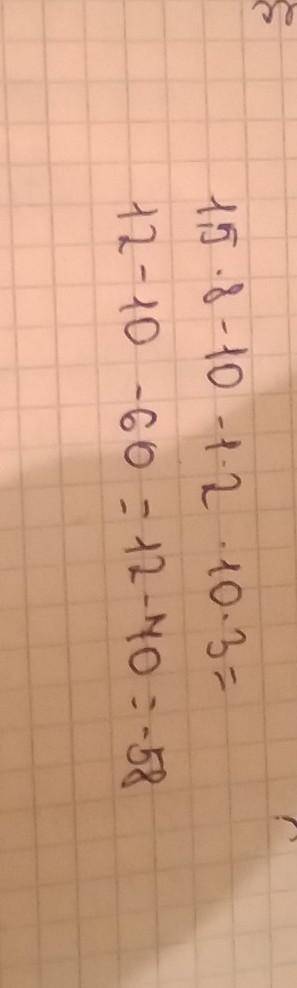 15 · 8 - 10 - 1 · 2 · 10 · 3 =
12 - 10 - 60 = 12 - 70 = -58